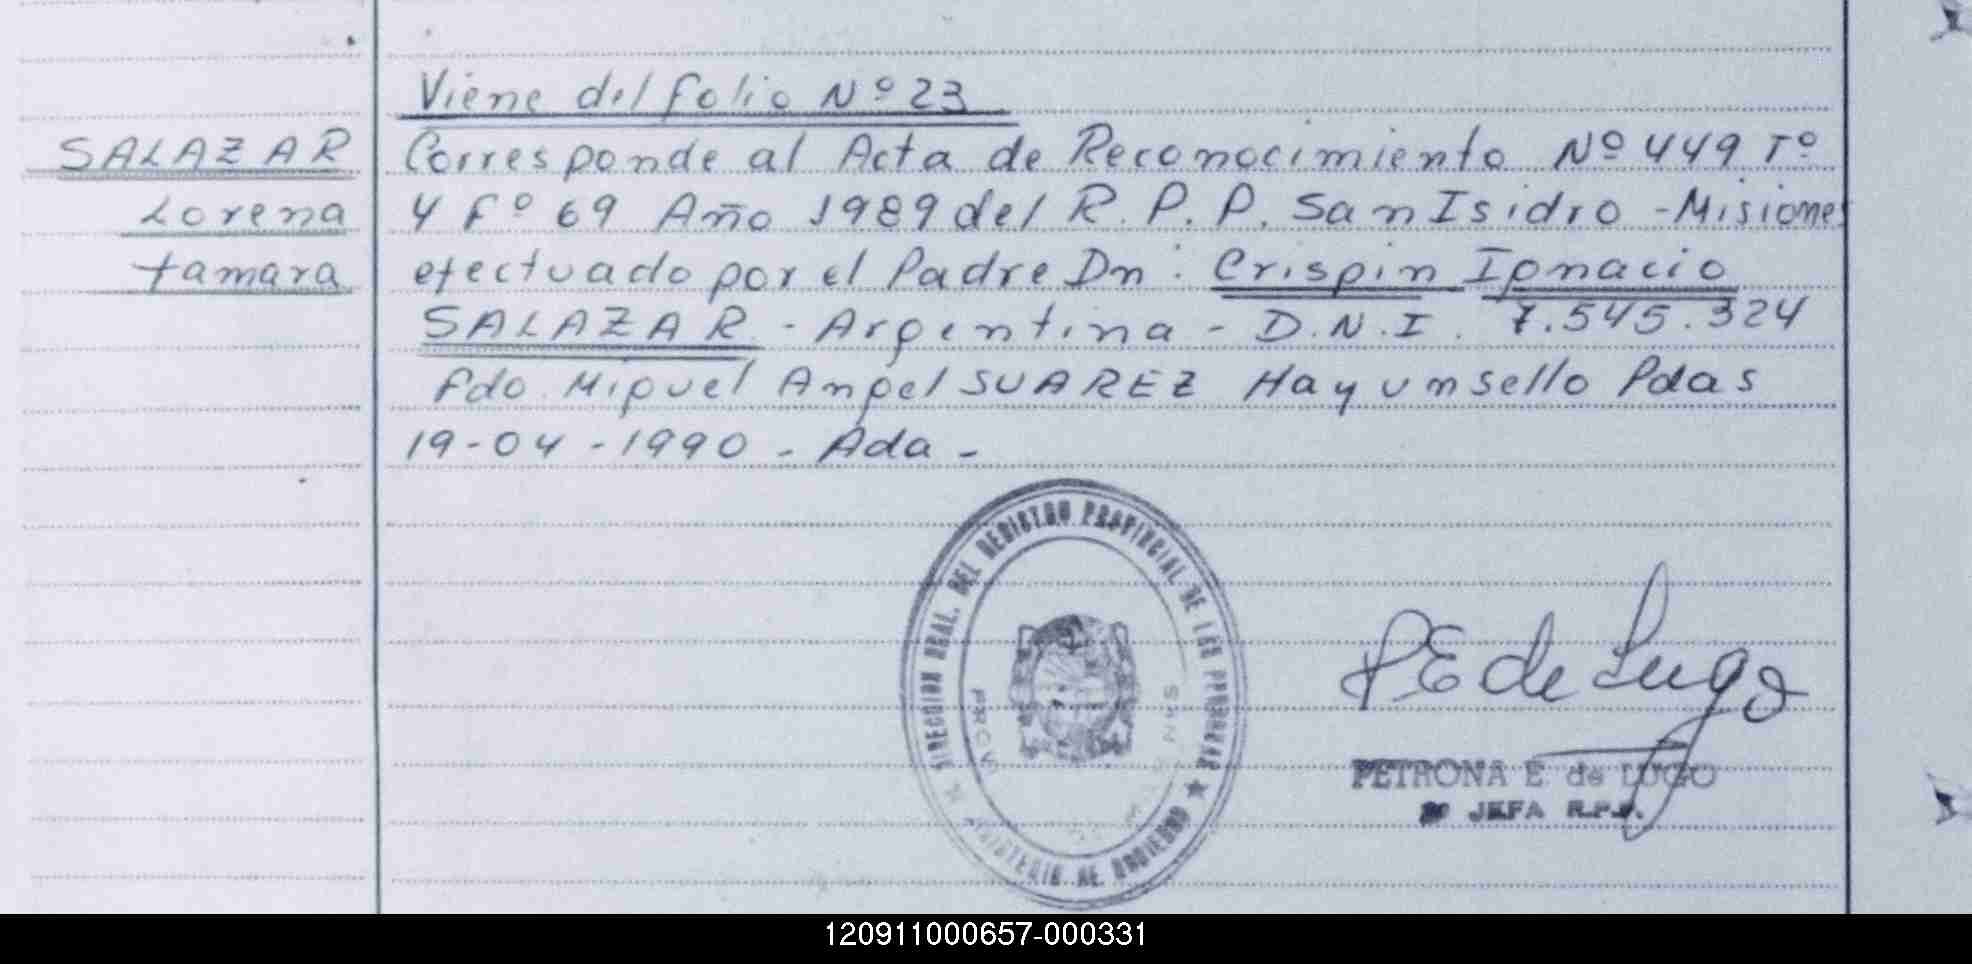 Viene del folio Nº 23
SALAZAR
Lorena
tamara
Corresponde al Acta de Reconocimiento Nº 449 Tº
4 Fº 69 Año 1989 del R. P. P. San Isidro - Misiones
efectuado por el Padre Dn: Crispin Ignacio
SALAZAR - Argentina - D.N.I. 7.545.324
Fdo. Miguel Angel SUAREZ Hay un sello Pdas
19-04-1990 - Ada -
DIRECCION GRAL. DEL REGISTRO PROVINCIAL DE LAS PERSONAS
MINISTERIO DE GOBIERNO
PE de Lugo
PETRONA E de LUGO
JEFA R.P.P.
120911000657-000331